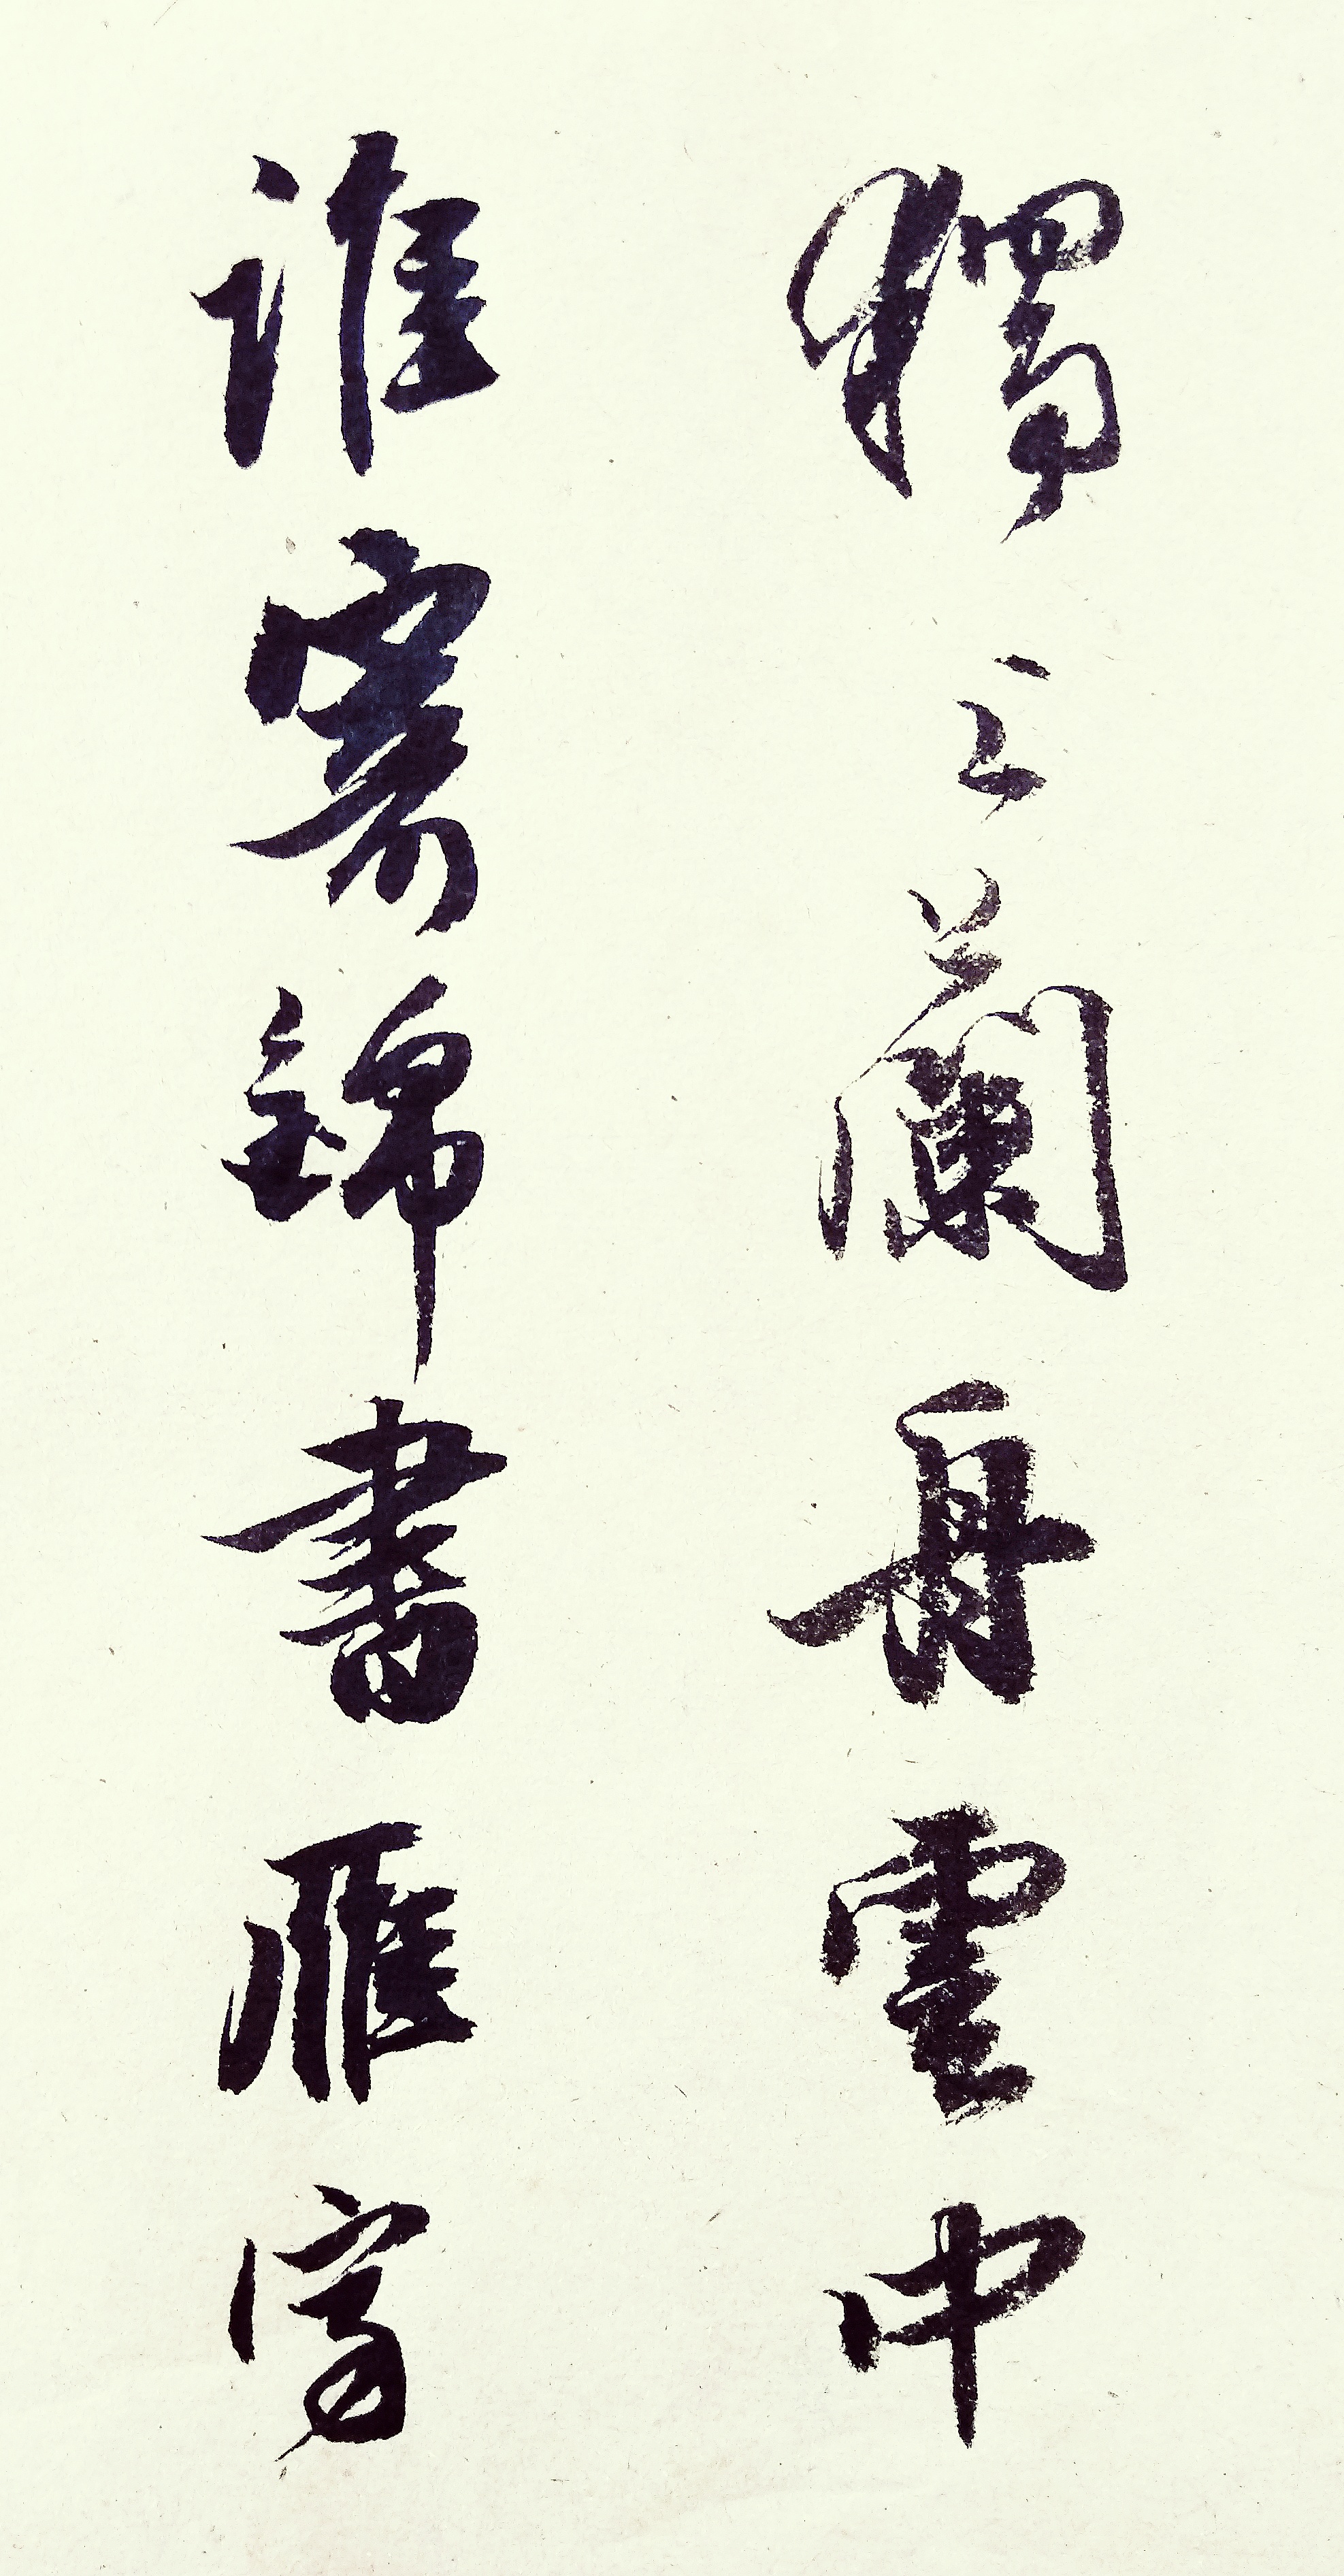 獨上蘭舟雲中
誰寄錦書雁字